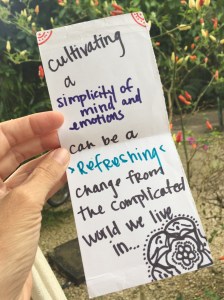 cultivating
a
simplicity of
mind and
emotions
can be a
>Refreshing<
change from
the complicated
world we live
in...